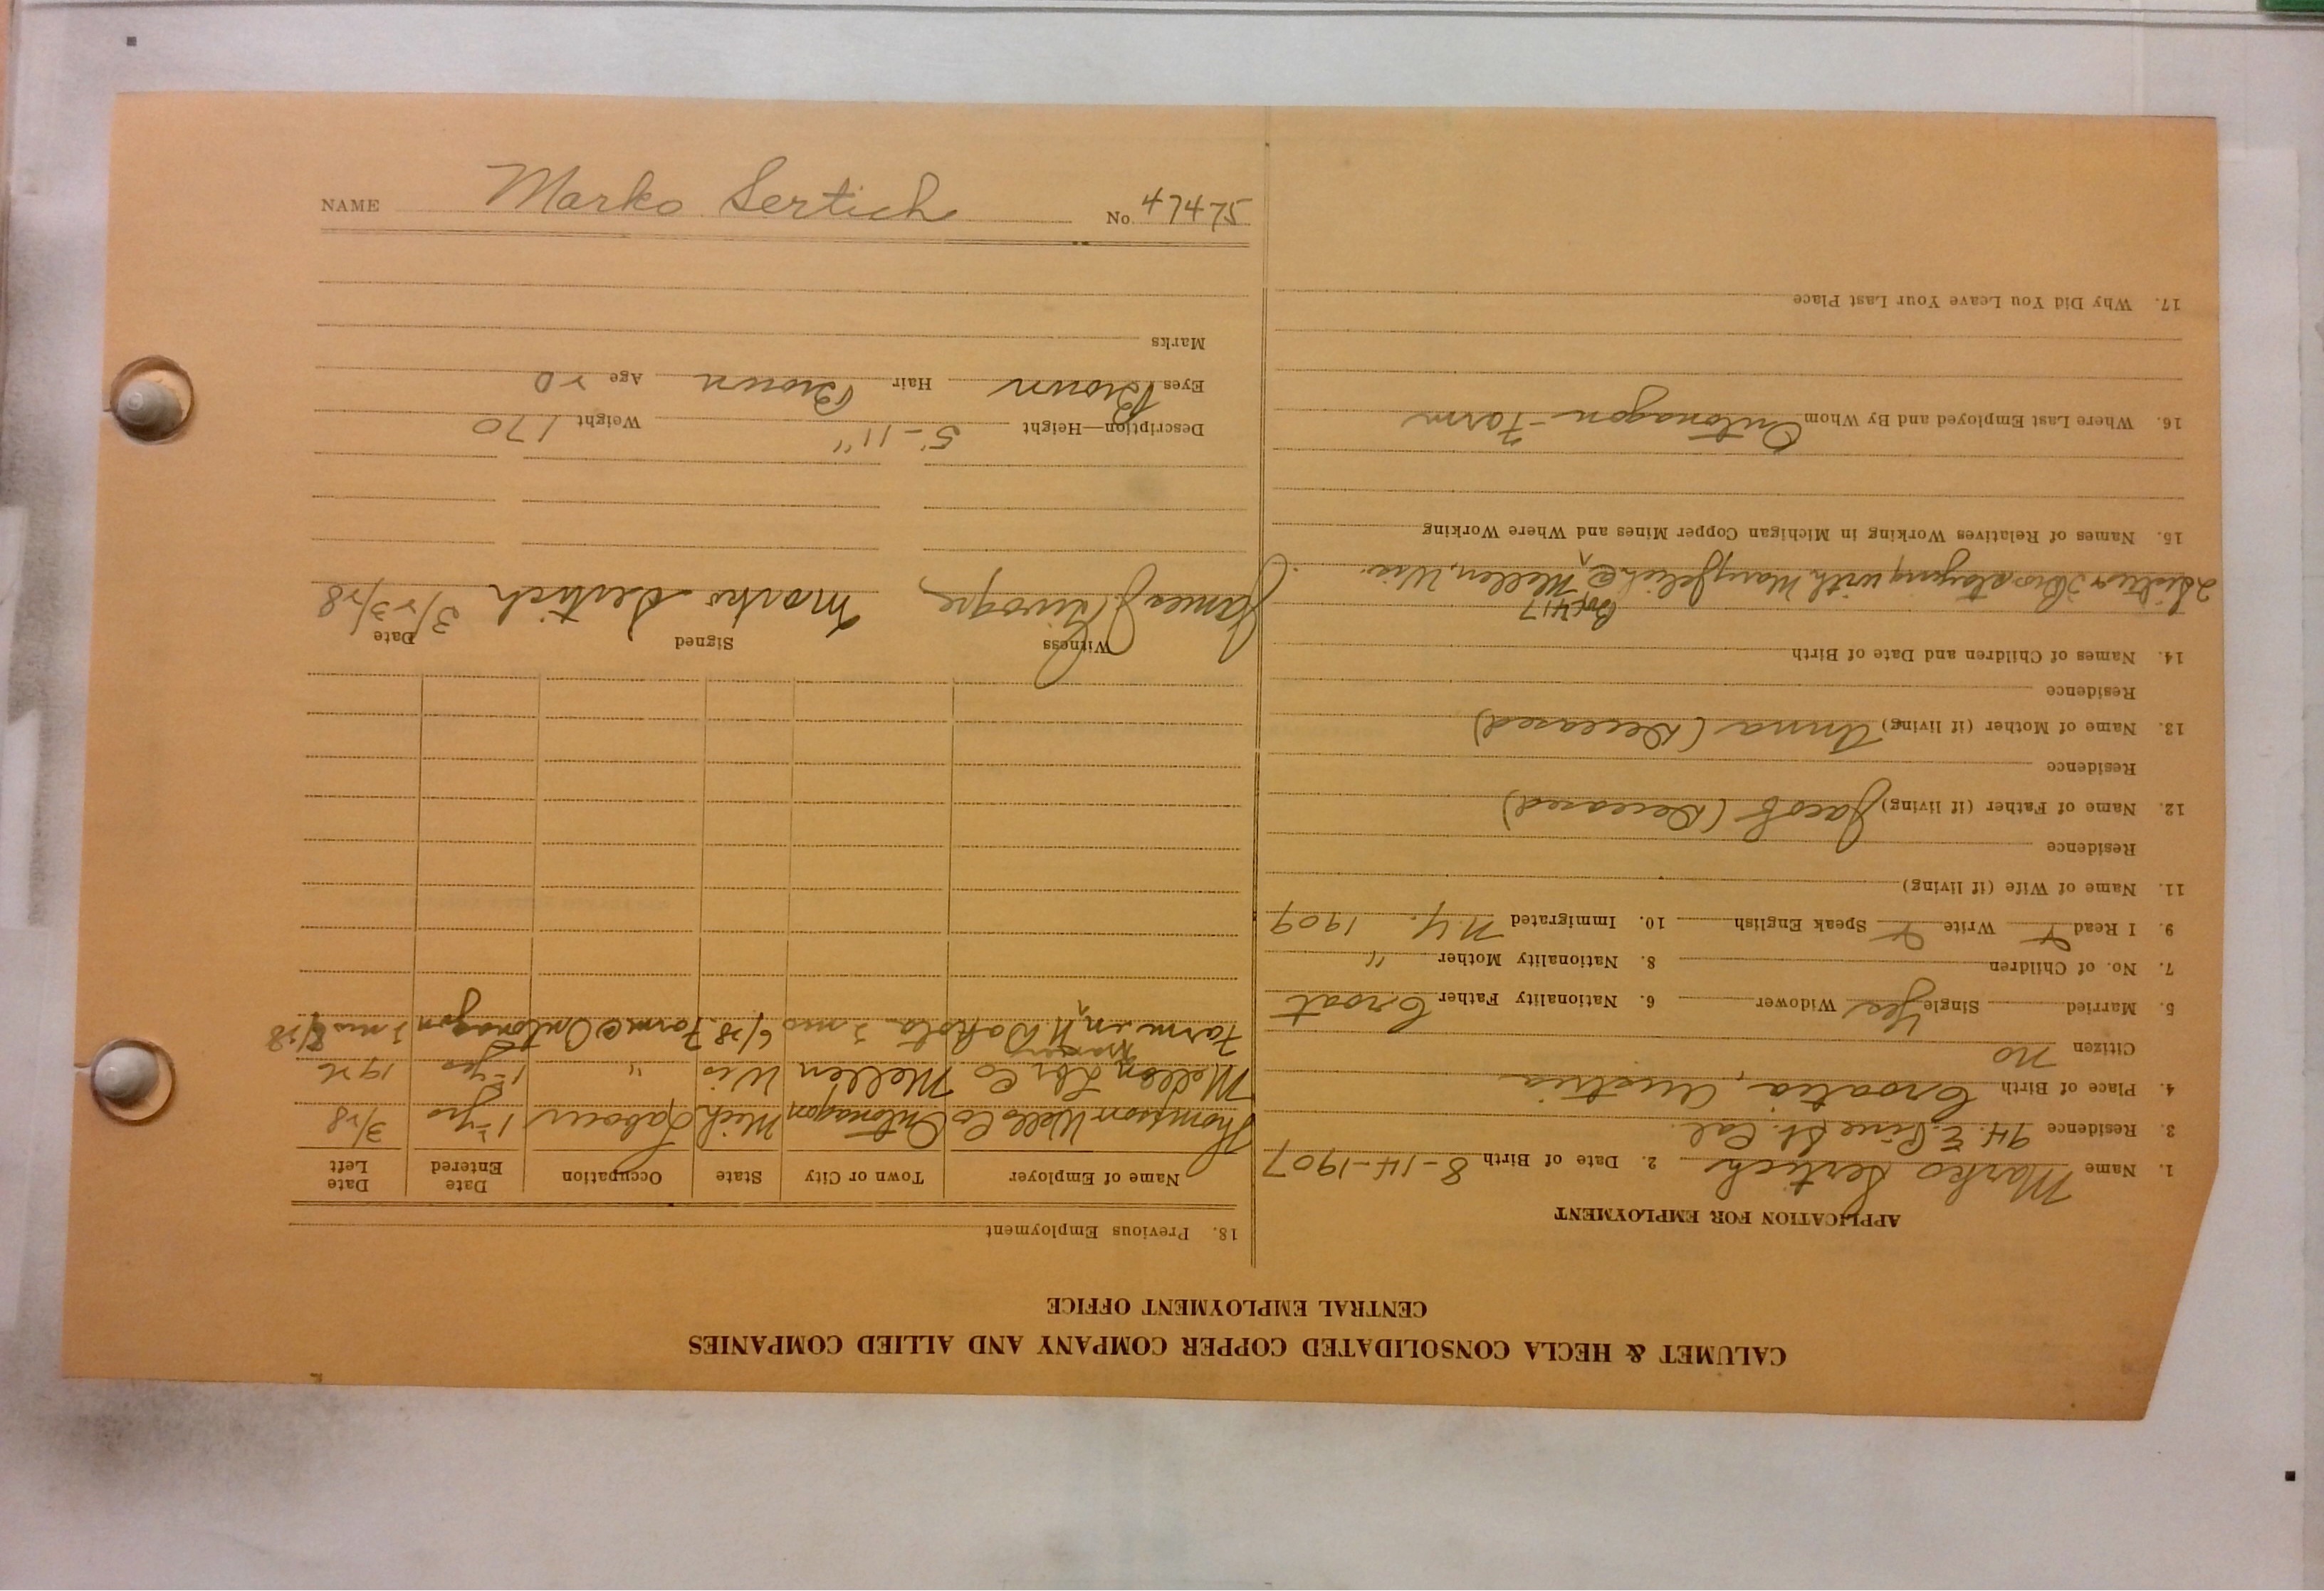 NAME Marko Sertich No. 47475
CALUMET & HECLA CONSOLIDATED COPPER COMPANY AND ALLIED COMPANIES
CENTRAL EMPLOYMENT OFFICE
APPLICATION FOR EMPLOYMENT
1. Name Marko Sertich 2. Date of Birth 8-14-1907
3. Residence 94 E. Pine St. Cal.
4. Place of Birth Croatia, Austria
Citizen no
5. Married Single Yes Widower 6. Nationality Father Croat
7. No. of Children 8. Nationality Mother "
9. I Read Write Speak English 10. Immigrated N.Y. 1909
11. Name of Wife (if living)
Residence
12. Name of Father (if living) Jacob (Deceased)
Residence
13. Name of Mother (if living) Anna (Deceased)
Residence
14. Names of Children and Date of Birth
Box 417
2 Sister & 2 Bro staying with Mary @ Mellen, Wis.
15. Names of Relatives Working in Michigan Copper Mines and Where Working
16. Where Last Employed and By Whom Ontonagon - Farm
17. Why Did You Leave Your Last Place
18. Previous Employment
Name of Employer Town or City State Occupation Date Entered Date Left
Thompson Wells Co Ontonagon Mich Laborer 1-yr 3/28
Mellen Lbr Co Mellen Wis " 1-yr 1926
Farm in N. Dakota 2 mo 6/28 Farm @ Ontonagon 2 mo 8/28
Witness Signed Date
James Marko Sertich
Description—Height 5-11" Weight 170
Eyes Brown Hair Brown Age 20
Marks